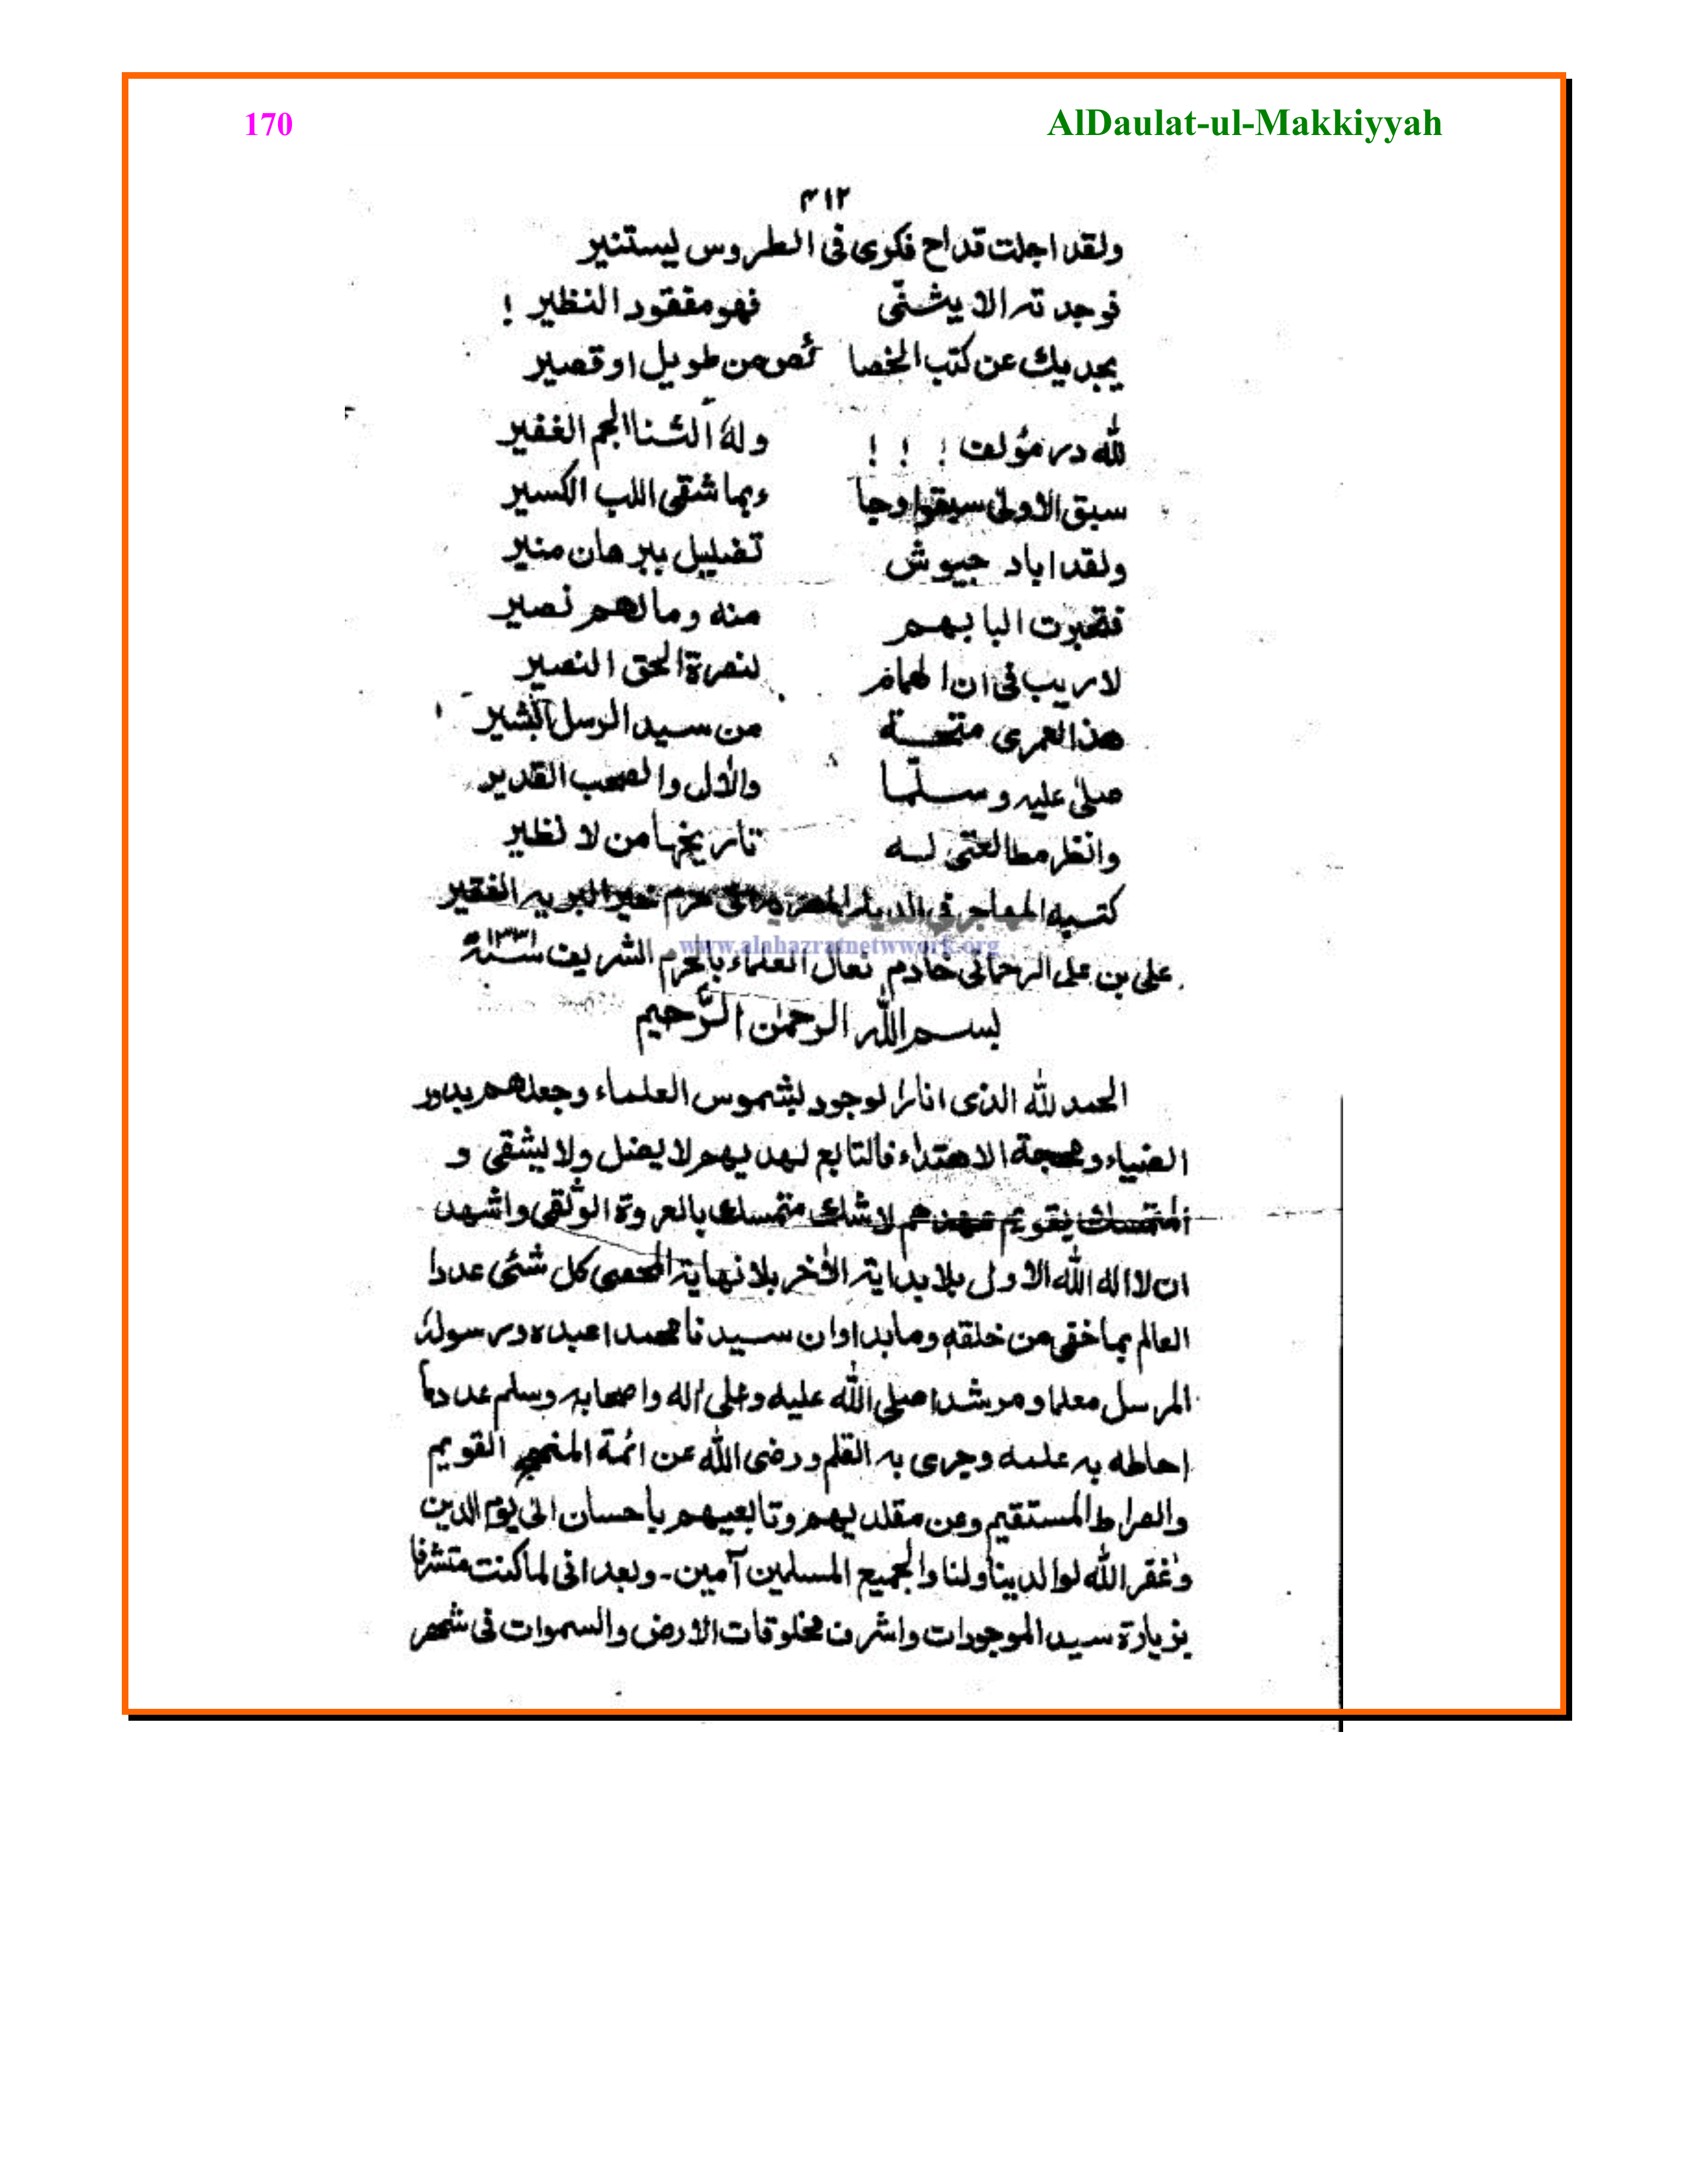 170 AlDaulat-ul-Makkiyyah
٤١٢
ولقد اجلت قداح فكرى فى الطروس ليستنير
فوجد ته الا يثنّى فهو مفقود النظير !
يجديك عن كتب الخصا ئص من طويل او قصير
لله در مؤلف ! ! ! وله الثنا الجم الغفير
سبق الاولى سبقوا وجا ء بما شفى اللب الكسير
ولقد اباد جيوش تضليل ببرهان منير
البا بهم منه وما لهم نصير
لا ريب فى ان الهمام لنصرة الحق النصير
هذا لعمرى من سيد الرسل البشير
صلى عليه وسلما والأل والصحب القدير
وانظر مطالعتى له تاريخها من لا نظير
كتبه المهاجر فى الديار الى حرم خير البريه الفقير
www.alahazratnetwwork.org
على بن على الرحمانى خادم نعال العلماء بالحرم الشريف سنة ١٣٣١ه
بسم الله الرحمٰن الرَّحيم
الحمد لله الذى انار الوجود بشموس العلماء وجعلهم بدور
الضياء ومحجة الاهتداء فالتابع لهديهم لا يضل ولا يشقى و
المتمسك بقويم عهدهم لا شك متمسك بالعروة الوثقى واشهد
ان لا اله الله الاول بلا بداية الأخر بلا نهاية المحصى كل شئى عددا
العالم بما خفى من خلقه وما بدا وان سيدنا محمدا عبده ورسوله
المرسل معلما ومرشدا صلى الله عليه وعلى اله واصحابه وسلم عدد ما
احاطه به علمه وجرى به القلم ورضى الله عن ائمة المنهج القويم
والصراط المستقيم وعن مقلديهم وتابعيهم باحسان الى يوم الدين
وغفر الله لوالدينا ولنا والجميع المسلمين آمين ـ وبعد انى لما كنت متشرفا
بزيارة سيد الموجودات واشرف مخلوقات الارض والسموات فى شهر